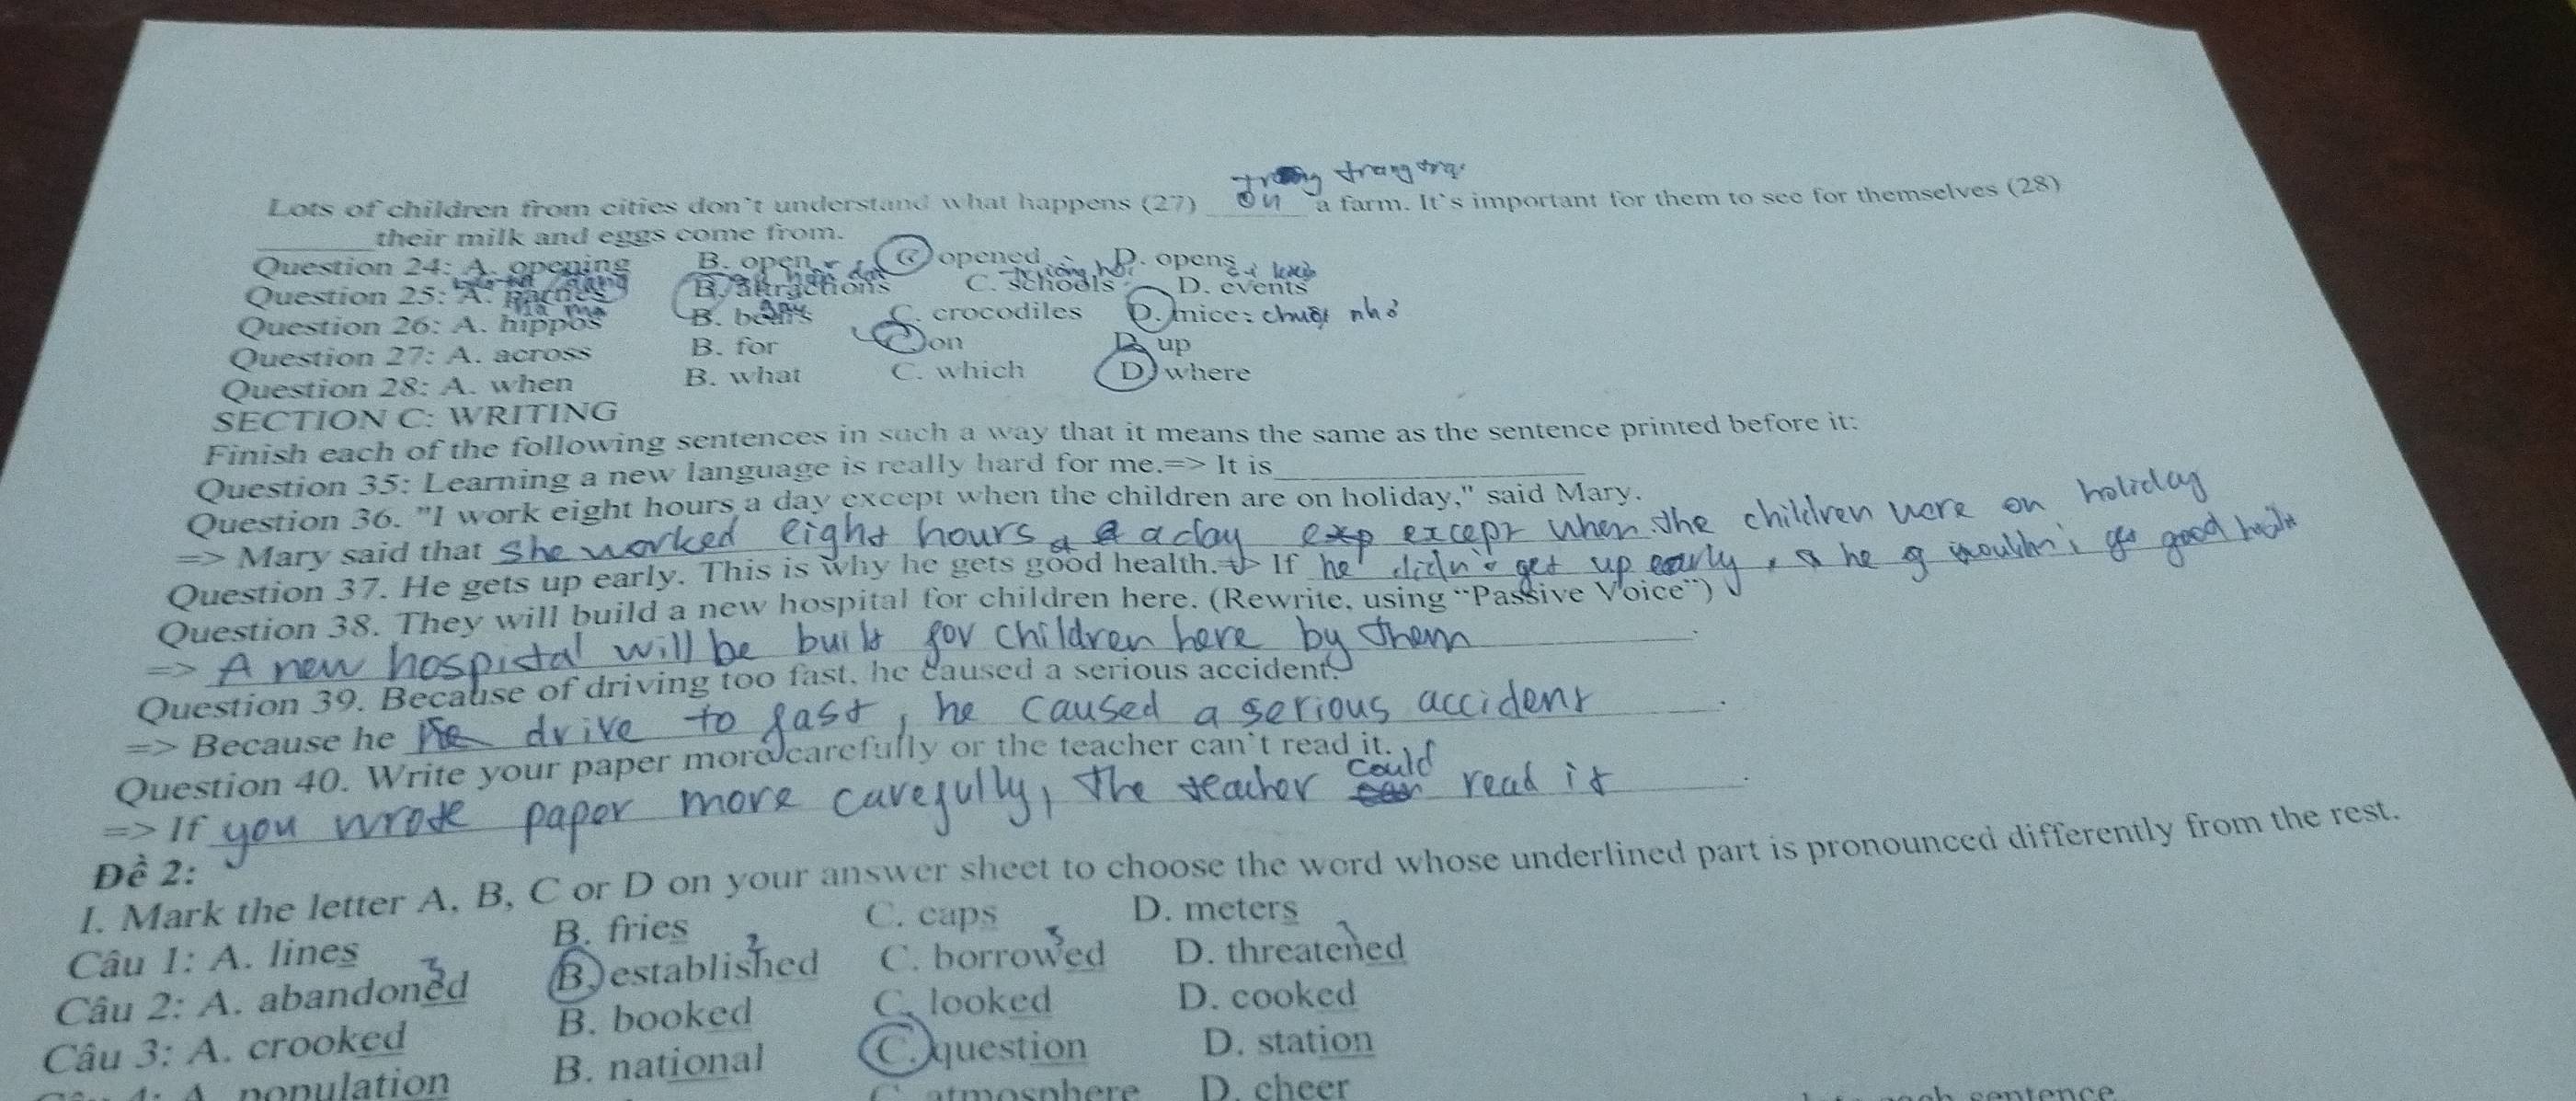 trong trang trại
Lots of children from cities don't understand what happens (27) on a farm. It's important for them to see for themselves (28)
________ their milk and eggs come from.
Question 24: A. opening B. open C. opened D. opens
Question 25: A. parties B. attractions C. schools D. events
Question 26: A. hippos B. bears C. crocodiles D. mice: chuột nhỏ
Question 27: A. across B. for C. on D. up
Question 28: A. when B. what C. which D. where
SECTION C: WRITING
Finish each of the following sentences in such a way that it means the same as the sentence printed before it:
Question 35: Learning a new language is really hard for me.=> It is________________
Question 36. "I work eight hours a day except when the children are on holiday," said Mary.
=> Mary said that she worked eight hours a day except when the children were on holiday
Question 37. He gets up early. This is why he gets good health. => If he didn't get up early, he wouldn't get good health
Question 38. They will build a new hospital for children here. (Rewrite, using “Passive Voice”)
=> A new hospistal will be built for children here by them.
Question 39. Because of driving too fast, he caused a serious accident.
=> Because he drive to fast, he caused a serious accident.
Question 40. Write your paper more carefully or the teacher can't read it.
=> If you wrote paper more carefully, the teacher could read it.
Đề 2:
I. Mark the letter A, B, C or D on your answer sheet to choose the word whose underlined part is pronounced differently from the rest.
Câu 1: A. lines B. fries C. caps D. meters
Câu 2: A. abandoned B. established C. borrowed D. threatened
Câu 3: A. crooked B. booked C. looked D. cooked
A. population B. national C. question D. station
C. atmosphere D. cheer
each sentence